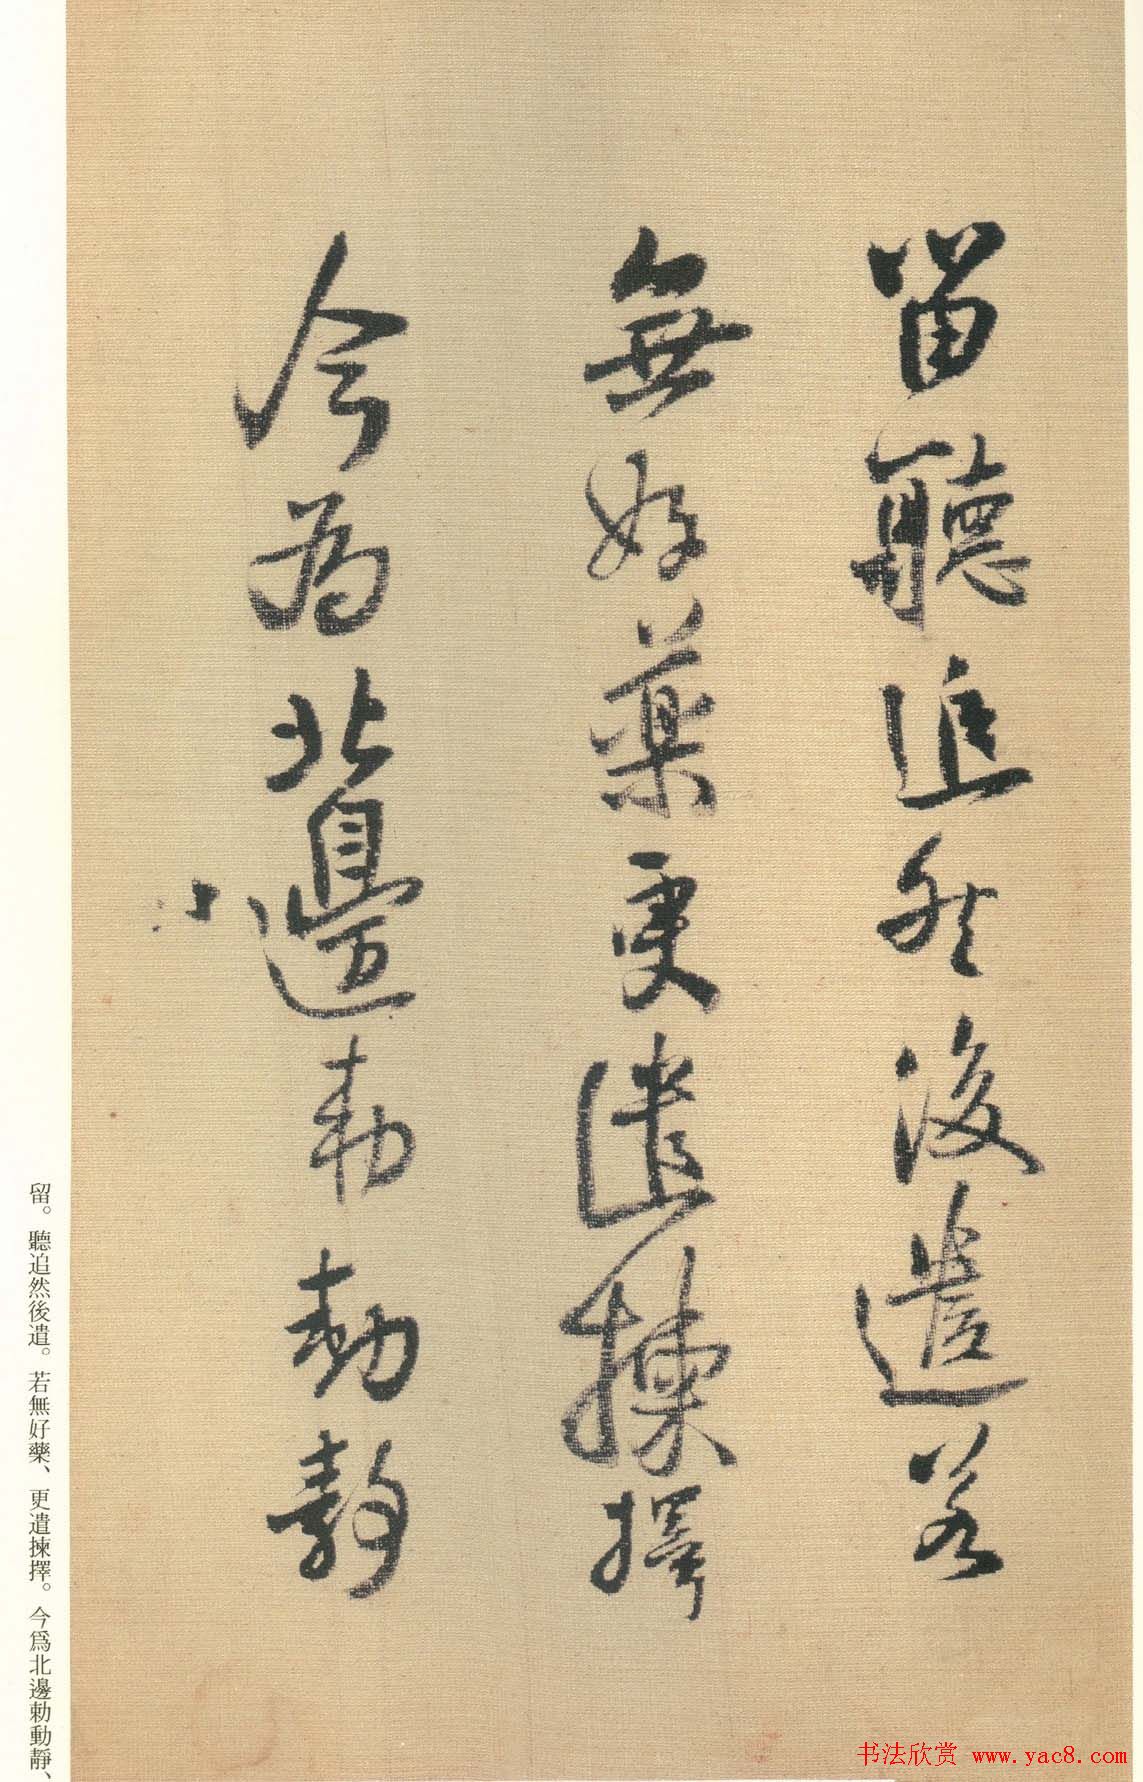 留聽追然後遣若
無好藥更遣揀擇
今為北邊勅動靜
留。聽追然後遣。若無好藥、更遣揀擇。今爲北邊勅動靜、
书法欣赏 www.yac8.com